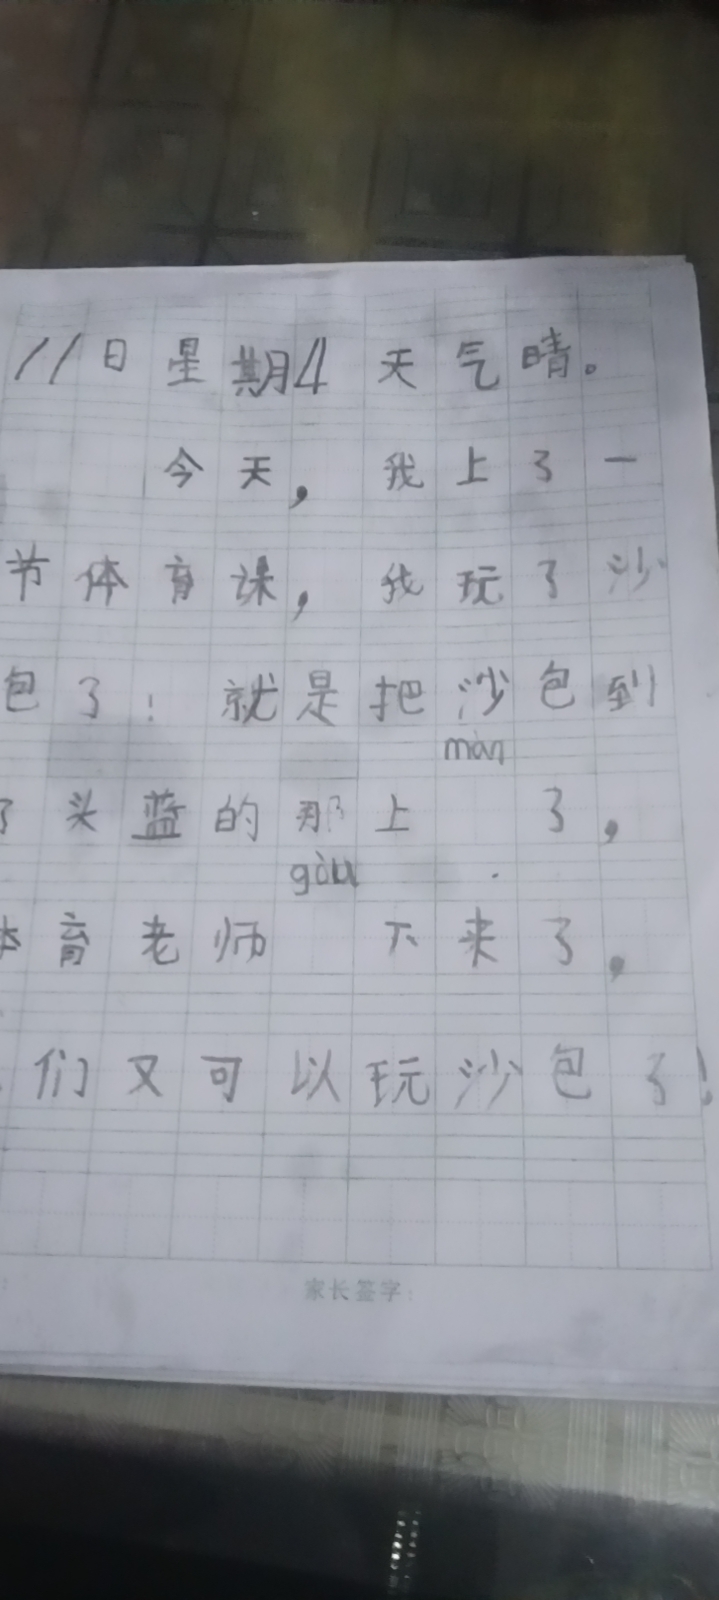 11日星期4天气晴。
今天，我上了一
节体育课，我玩了沙
包了！就是把沙包到
màn
了头蓝的那上 了，
gòu
体育老师 下来了，
们又可以玩沙包了！
家长签字：